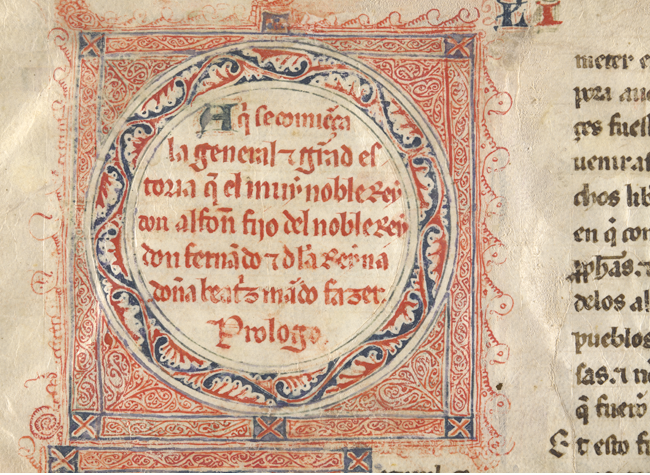 LI
Aq̃ se comiẽça
la general ⁊ grãd es
toria q̃ el muy noble Rey
don alfon̄ fijo del noble Rey
don fernãdo ⁊ dla Reyna
doña beatz mãdo fazer.
Prologo.
meter e
pora aue
ges fuess
uenirat
chos lib
en q̃ con
delos al
pueblos
sas. ⁊ n
q̃ fuerõ
E t esto fu